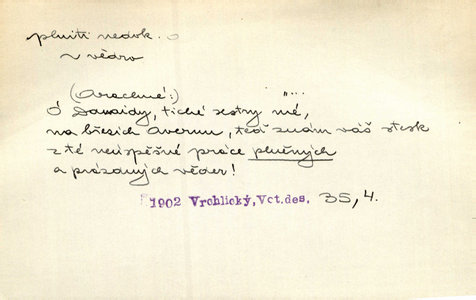 plniti nedok. o
~ vědro
(Arachné:) „…
Ó Danaidy, tiché sestry mé,
na březích Avernu, teď znám váš stesk
z té neúspěšné práce plněných
a prázdných věder!
1902 Vrchlický, Vct.des. 35, 4.